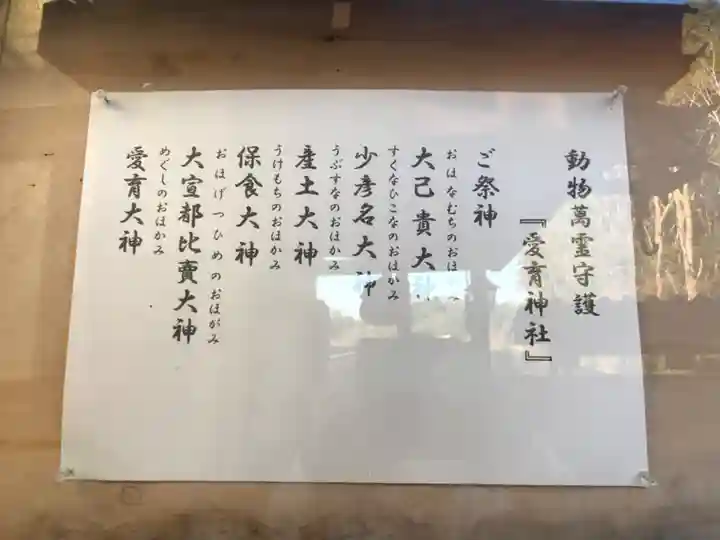 動物萬霊守護
『愛育神社』
ご祭神
おほなむちのおほ
大己貴大
すくなひこなのおほかみ
少彦名大神
うぶすなのおほかみ
産土大神
うけもちのおほかみ
保食大神
おほげつひめのおほがみ
大宣都比賣大神
めぐしのおほかみ
愛育大神